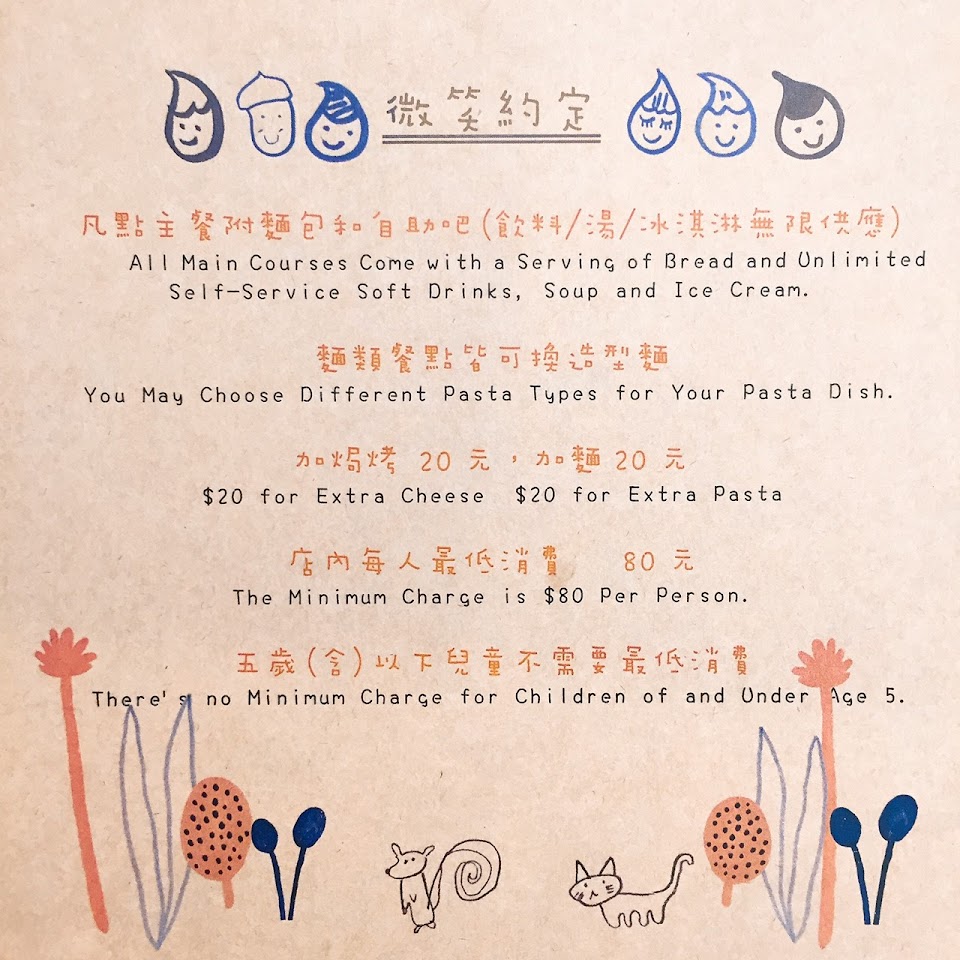 微笑約定
凡點主餐附麵包和自助吧(飲料/湯/冰淇淋無限供應)
All Main Courses Come with a Serving of Bread and Unlimited
Self-Service Soft Drinks, Soup and Ice Cream.
麵類餐點皆可換造型麵
You May Choose Different Pasta Types for Your Pasta Dish.
加焗烤 20 元，加麵 20 元
$20 for Extra Cheese $20 for Extra Pasta
店內每人最低消費 80 元
The Minimum Charge is $80 Per Person.
五歲(含)以下兒童不需要最低消費
There's no Minimum Charge for Children of and Under Age 5.